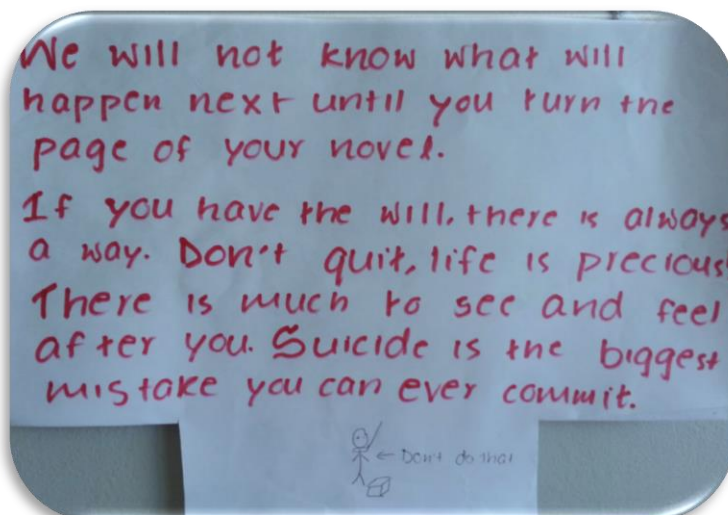 We will not know what will
happen next until you turn the
page of your novel.
If you have the will, there is always
a way. Don't quit, life is precious
There is much to see and feel
after you. Suicide is the biggest
mistake you can ever commit.
← Don't do that